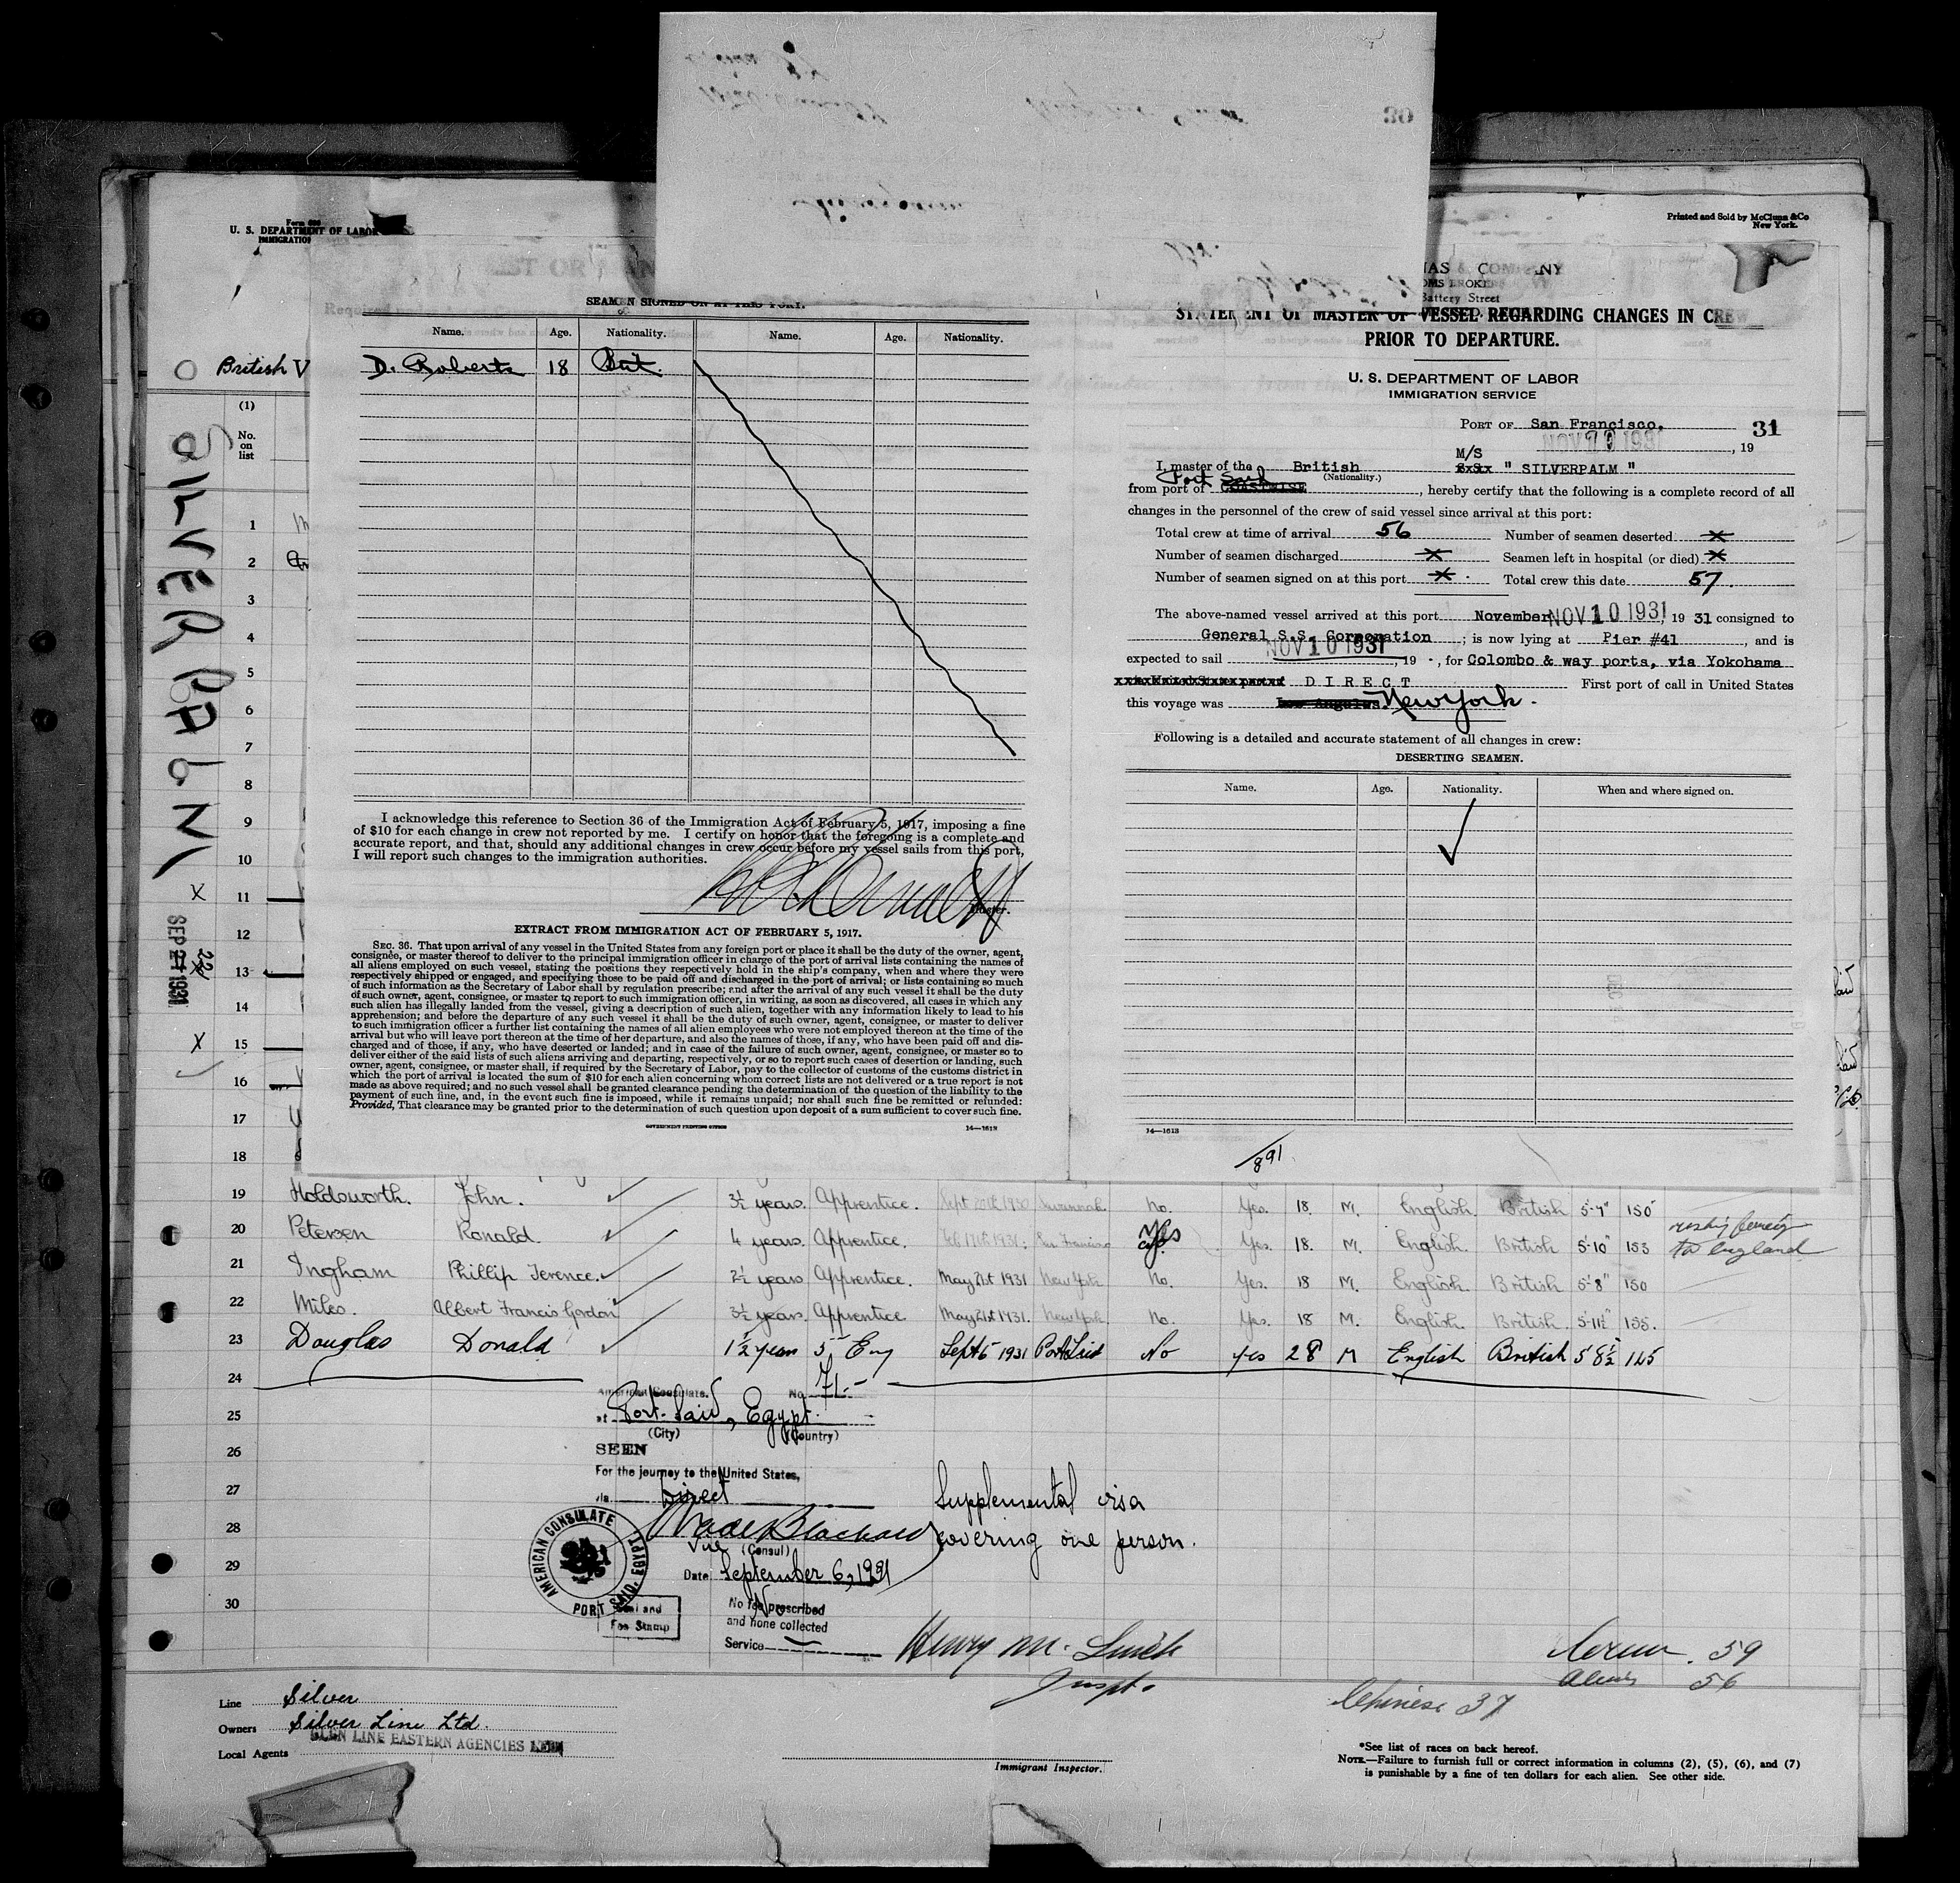 Form 680
U. S. DEPARTMENT OF LABOR
IMMIGRATION
Printed and Sold by McClunn & Co
New York.
30
British V
(1)
No.
on
list
SILVERPALM
SEP 21 1931
22
1
2
3
4
5
6
7
8
9
10
X 11
12
13
14
X 15
16
17
18
SEAMEN SIGNED ON AT THIS PORT.
Name. Age. Nationality. Name. Age. Nationality.
D. Roberts 18 Brit.
I acknowledge this reference to Section 36 of the Immigration Act of February 5, 1917, imposing a fine
of $10 for each change in crew not reported by me. I certify on honor that the foregoing is a complete and
accurate report, and that, should any additional changes in crew occur before my vessel sails from this port,
I will report such changes to the immigration authorities.
Master.
EXTRACT FROM IMMIGRATION ACT OF FEBRUARY 5, 1917.
SEC. 36. That upon arrival of any vessel in the United States from any foreign port or place it shall be the duty of the owner, agent,
consignee, or master thereof to deliver to the principal immigration officer in charge of the port of arrival lists containing the names of
all aliens employed on such vessel, stating the positions they respectively hold in the ship's company, when and where they were
respectively shipped or engaged, and specifying those to be paid off and discharged in the port of arrival; or lists containing so much
of such information as the Secretary of Labor shall by regulation prescribe; and after the arrival of any such vessel it shall be the duty
of such owner, agent, consignee, or master to report to such immigration officer, in writing, as soon as discovered, all cases in which any
such alien has illegally landed from the vessel, giving a description of such alien, together with any information likely to lead to his
apprehension; and before the departure of any such vessel it shall be the duty of such owner, agent, consignee, or master to deliver
to such immigration officer a further list containing the names of all alien employees who were not employed thereon at the time of the
arrival but who will leave port thereon at the time of her departure, and also the names of those, if any, who have been paid off and dis-
charged and of those, if any, who have deserted or landed; and in case of the failure of such owner, agent, consignee, or master so to
deliver either of the said lists of such aliens arriving and departing, respectively, or so to report such cases of desertion or landing, such
owner, agent, consignee, or master shall, if required by the Secretary of Labor, pay to the collector of customs of the customs district in
which the port of arrival is located the sum of $10 for each alien concerning whom correct lists are not delivered or a true report is not
made as above required; and no such vessel shall be granted clearance pending the determination of the question of the liability to the
payment of such fine, and, in the event such fine is imposed, while it remains unpaid; nor shall such fine be remitted or refunded:
Provided, That clearance may be granted prior to the determination of such question upon deposit of a sum sufficient to cover such fine.
GOVERNMENT PRINTING OFFICE 14—1613
COMPANY
Battery Street
STATEMENT OF MASTER OF VESSEL REGARDING CHANGES IN CREW
PRIOR TO DEPARTURE.
U. S. DEPARTMENT OF LABOR
IMMIGRATION SERVICE
PORT OF San Francisco,
NOV 10 1931 , 19 31
I, master of the British M/S " SILVERPALM "
(Nationality.)
from port of Port Said COASTWISE, hereby certify that the following is a complete record of all
changes in the personnel of the crew of said vessel since arrival at this port:
Total crew at time of arrival 56 Number of seamen deserted x
Number of seamen discharged x Seamen left in hospital (or died) x
Number of seamen signed on at this port x Total crew this date 57.
The above-named vessel arrived at this port November NOV 10 1931, 19 31 consigned to
General S.S. Corporation ; is now lying at Pier #41 , and is
expected to sail NOV 10 1931, 19 , for Colombo & way ports, via Yokohama
DIRECT First port of call in United States
this voyage was Los Angeles New York.
Following is a detailed and accurate statement of all changes in crew:
DESERTING SEAMEN.
Name. Age. Nationality. When and where signed on.
14—1613
891
19 Holdsworth. John. 3½ years. Apprentice. Sept 20th 1930 Savannah. No. Yes. 18. M. English. British 5-7" 150
20 Petersen Ronald. 4 years. Apprentice. Feb 17th 1931. San Francisco Yes Yes. 18. M. English. British. 5-10" 153
to England
21 Ingham Phillip Terence. 2½ years Apprentice. May 21st 1931 New York No. Yes. 18 M. English. British 5-8" 150
22 Miles. Albert Francis Gordon 3½ years. Apprentice May 21st 1931. New York. No. Yes. 18 M. English. British. 5-11½" 155.
23 Douglas Donald 1½ year 5 Eng Sept 6 1931 Port Said No yes 28 M English British 5 8½ 125
24
25
26
27
28
29
30
American Consulate. No. 71.
at Port Said, Egypt.
(City) (Country)
SEEN
For the journey to the United States,
via Direct
Vice (Consul)
Date September 6, 1931
No fee prescribed
and none collected
Service
AMERICAN CONSULATE
PORT SAID, EGYPT
Seal and
Fee Stamp
Supplemental visa
covering one person.
Henry M.
Inspt.
59
Aliens 56
Chinese 37
Line Silver
Owners Silver Line Ltd.
Local Agents GLEN LINE EASTERN AGENCIES LTD
Immigrant Inspector.
*See list of races on back hereof.
NOTE.—Failure to furnish full or correct information in columns (2), (5), (6), and (7)
is punishable by a fine of ten dollars for each alien. See other side.